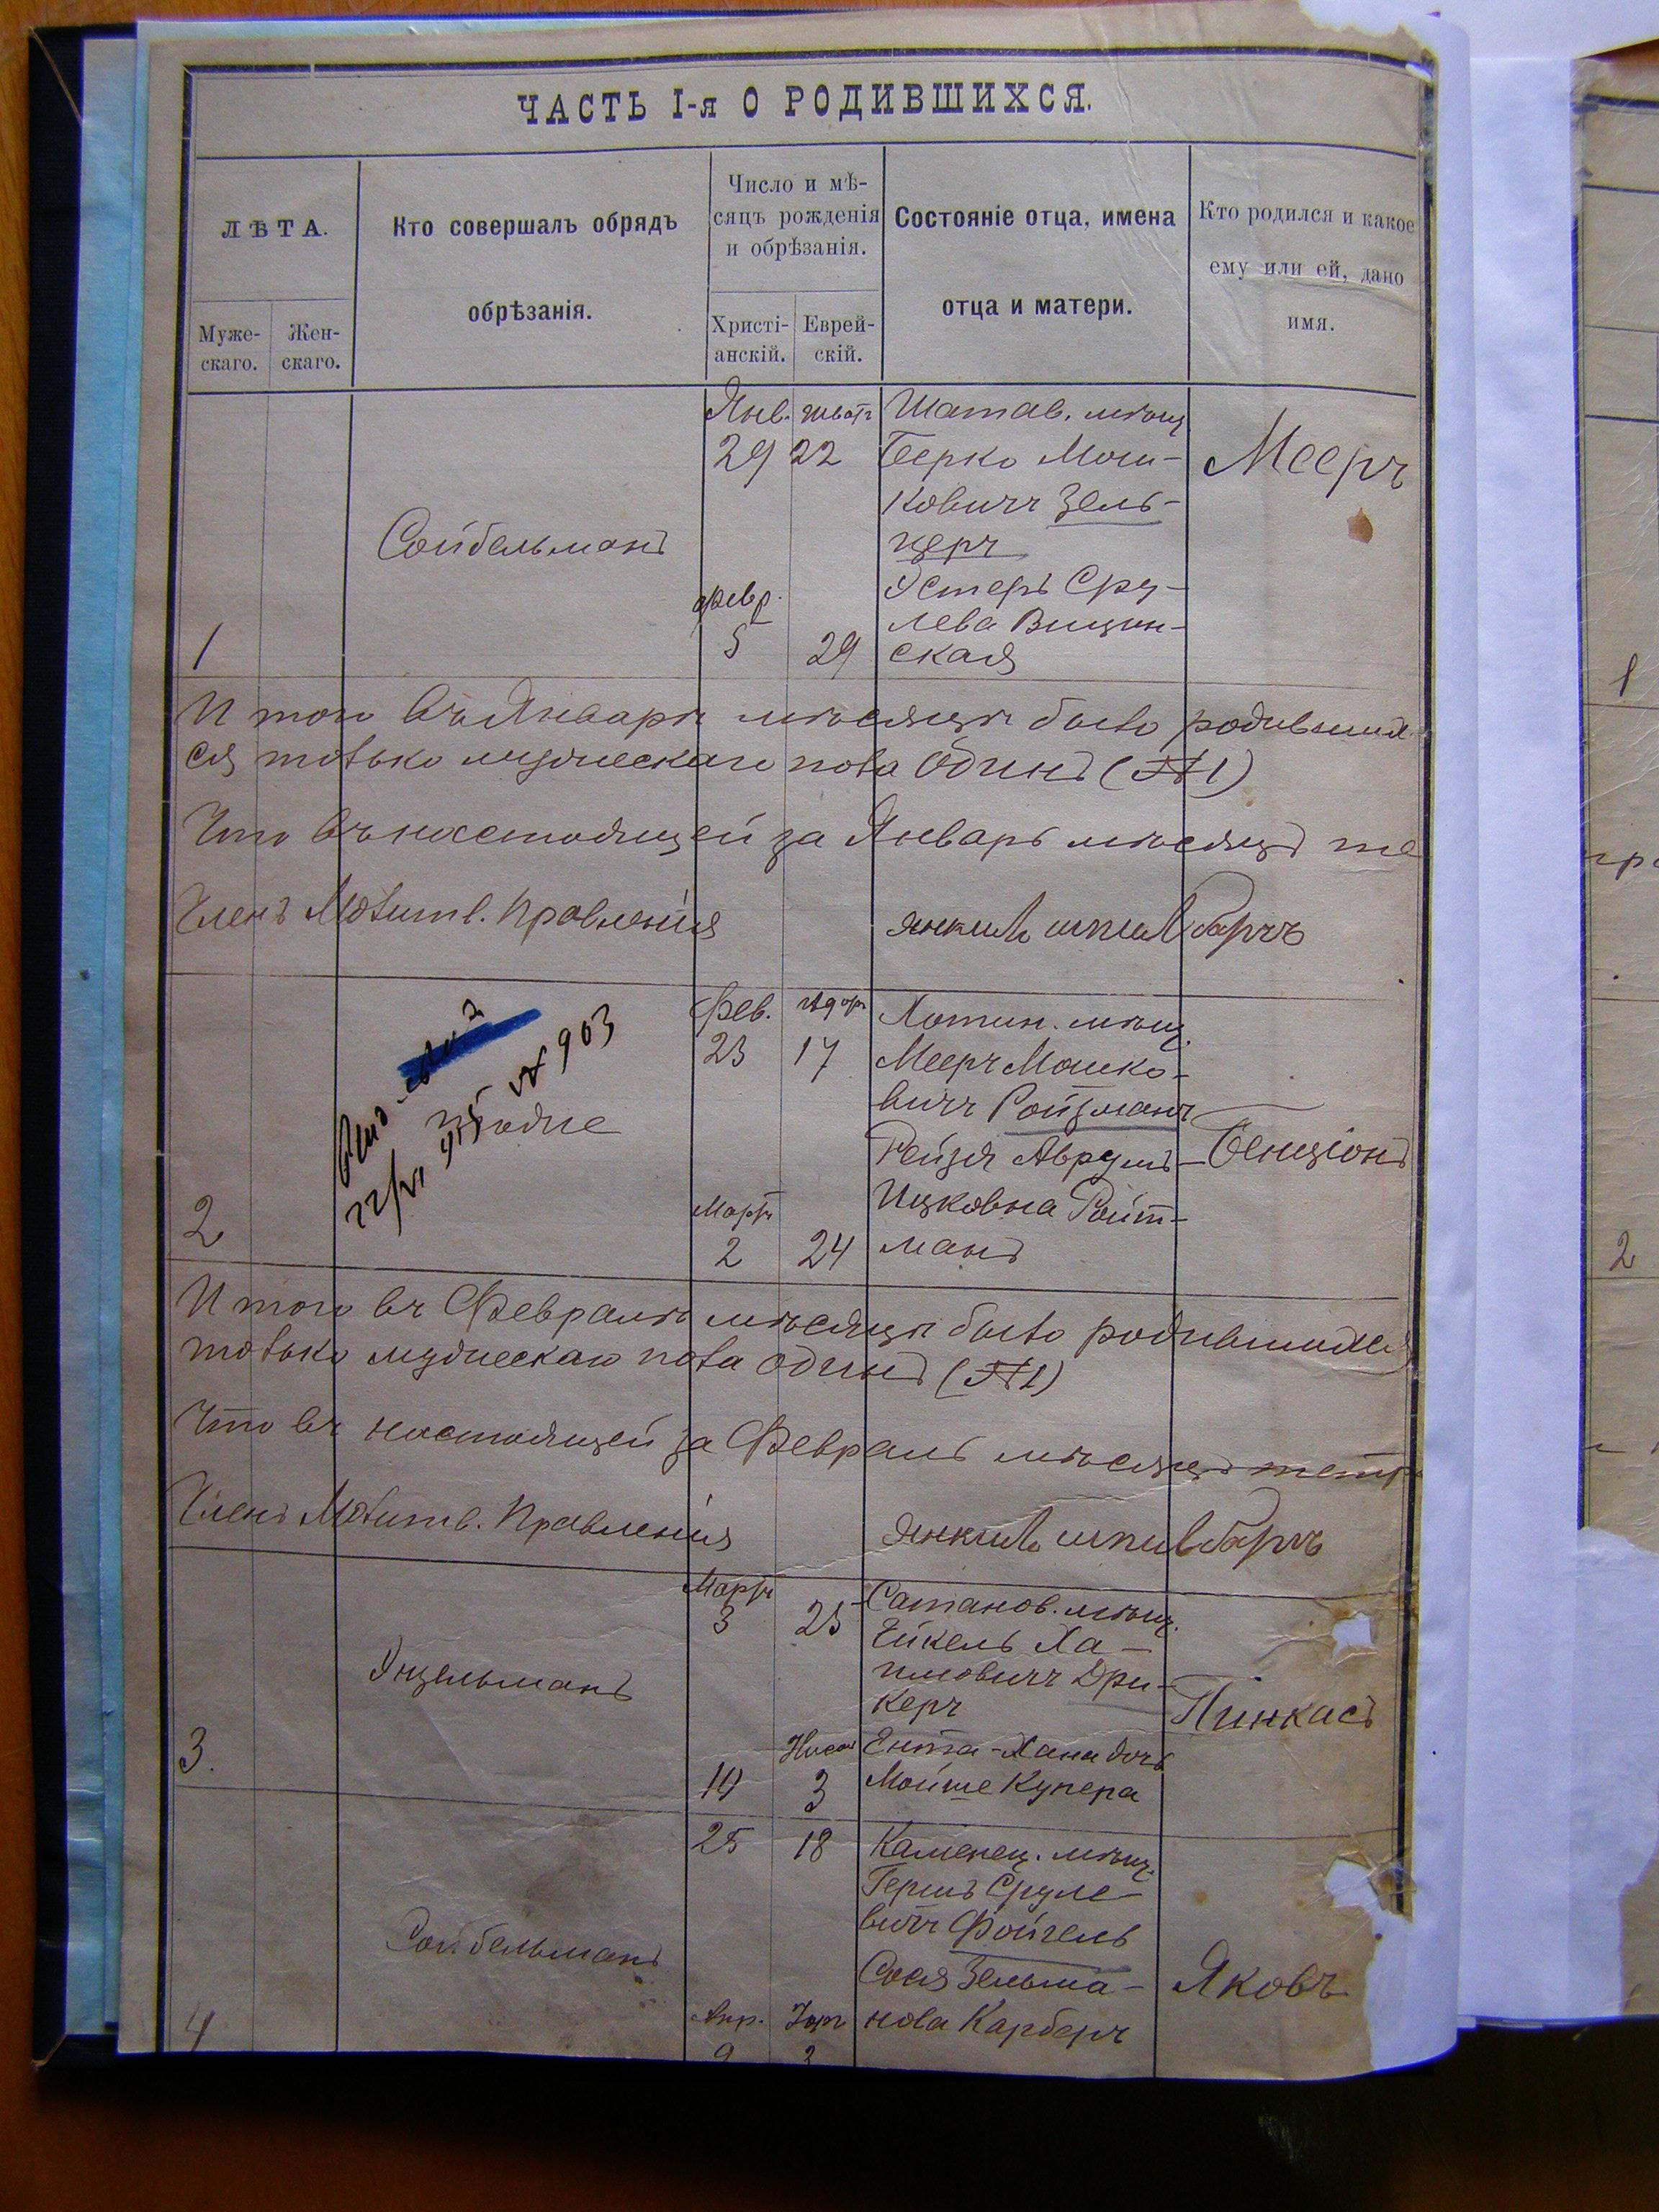 ЧАСТЬ I-я О РОДИВШИХСЯ.
ЛѢТА.
Муже-
скаго.
Жен-
скаго.
Кто совершалъ обрядъ
обрѣзанія.
Число и мѣ-
сяцъ рожденія
и обрѣзанія.
Христі-
анскій.
Еврей-
скій.
Состояніе отца, имена
отца и матери.
Кто родился и какое
ему или ей, дано
имя.
1
Сойбельманъ
Янв. Шватъ
29 22
Февр.
5 29
Шатав. мѣщ.
Берко Мош-
ковичъ Зель-
церъ
Эстеръ Сру-
лева Вищин-
ская
Мееръ
Итого въ Январѣ мѣсяцѣ было родивших
ся только мужескаго пола Одинъ (№1)
Что въ настоящей за Январь мѣсяцъ те
Членъ Молитв. Правленія
янкиль шпилбаргъ
2
тоже
903
Фев. Адаръ
23 17
Мартъ
2 24
Хотин. мѣщ.
Мееръ Мошко-
вичъ Ройзманъ
Рейзя Аврумъ-
Ицковна Ройт-
манъ
Бенціонъ
Итого въ Февралѣ мѣсяцѣ было родившихся
только мужескаго пола Одинъ (№1)
Что въ настоящей за Февраль мѣсяцъ тетр
Членъ Молитв. Правленія
янкиль шпилбаргъ
3.
Энцельманъ
Мартъ
3 25
Нисан
10 3
Сатанов. мѣщ.
Ейкель Ха-
имовичъ Дри-
керъ
Ента-Хана дочь
Мойше Купера
Пинкасъ
4
Сойбельманъ
25 18
Апр. Іаръ
9 3
Каменец. мѣщ.
Гершъ Сруле-
вичъ Фойгель
Сося Зельма-
нова Карберъ
Яковъ
1
2